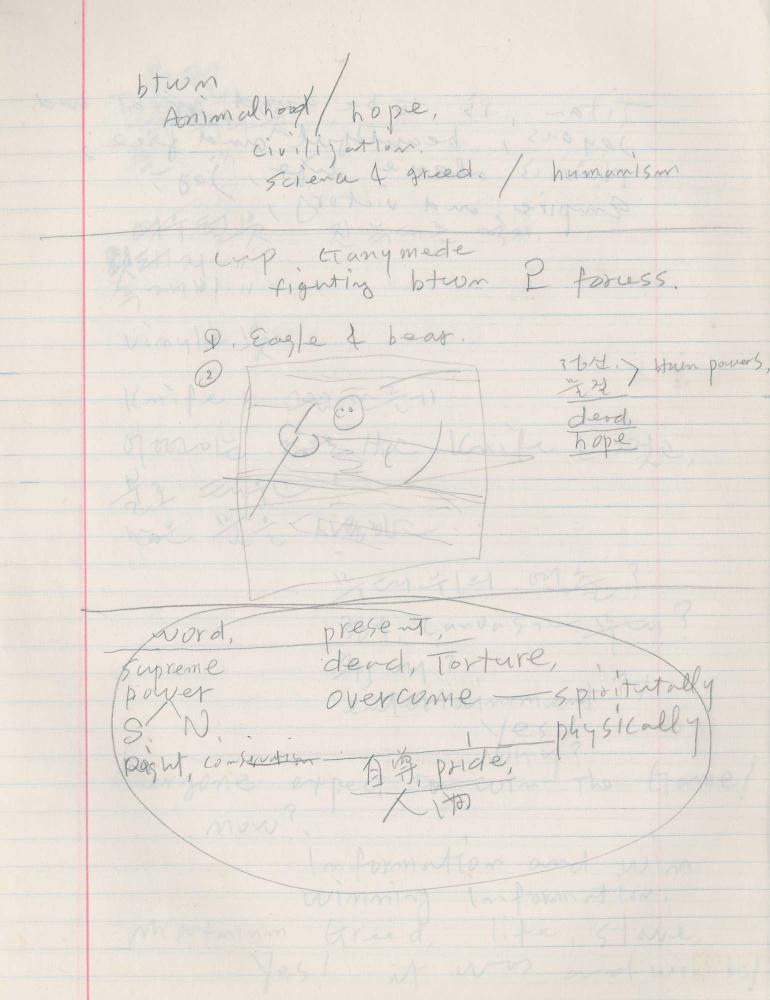 btwn
Animalhood / hope,
civilization,
science & greed. / humanism
cup Ganymede
fighting btwn 2 forcess.
①. Eagle & bear.
②
정신. > btwn powers,
물질
dead,
hope
word, present,
Supreme dead, Torture,
power overcome — spiritutally
S. N. — physically
Right,
自尊, pride,
人